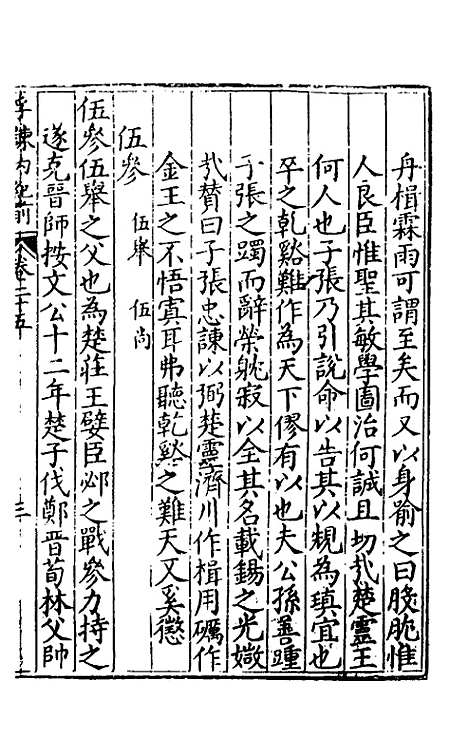 舟楫霖雨可謂至矣而又以身喻之曰股肱惟
人良臣惟聖其敏學圖治何誠且切㢤楚靈王
何人也子張乃引說命以告其以規為瑱宜也
卒之乾谿難作為天下僇有以也夫公孫善踵
子張之躅而辭榮躭寂以全其名載錫之光媺
㢤贊曰子張忠諫以弼楚靈濟川作楫用礪作
金王之不悟寘耳弗聽乾谿之難天又奚懲
伍參　伍舉　伍尚
伍參伍舉之父也為楚莊王嬖臣邲之戰參力持之
遂克晉師按文公十二年楚子伐鄭晉荀林父帥
卷二十五　三